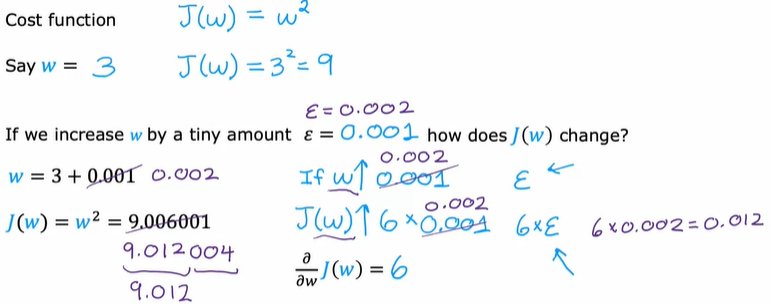 Cost function J(w) = w²
Say w = 3 J(w) = 3² = 9
ε = 0.002
If we increase w by a tiny amount ε = 0.001 how does J(w) change?
0.002
w = 3 + 0.001 0.002 If w↑ 0.001 ε ←
0.002
J(w) = w² = 9.006001 J(w)↑ 6 × 0.001 6×ε 6×0.002=0.012
9.012004
∂/∂w J(w) = 6
9.012